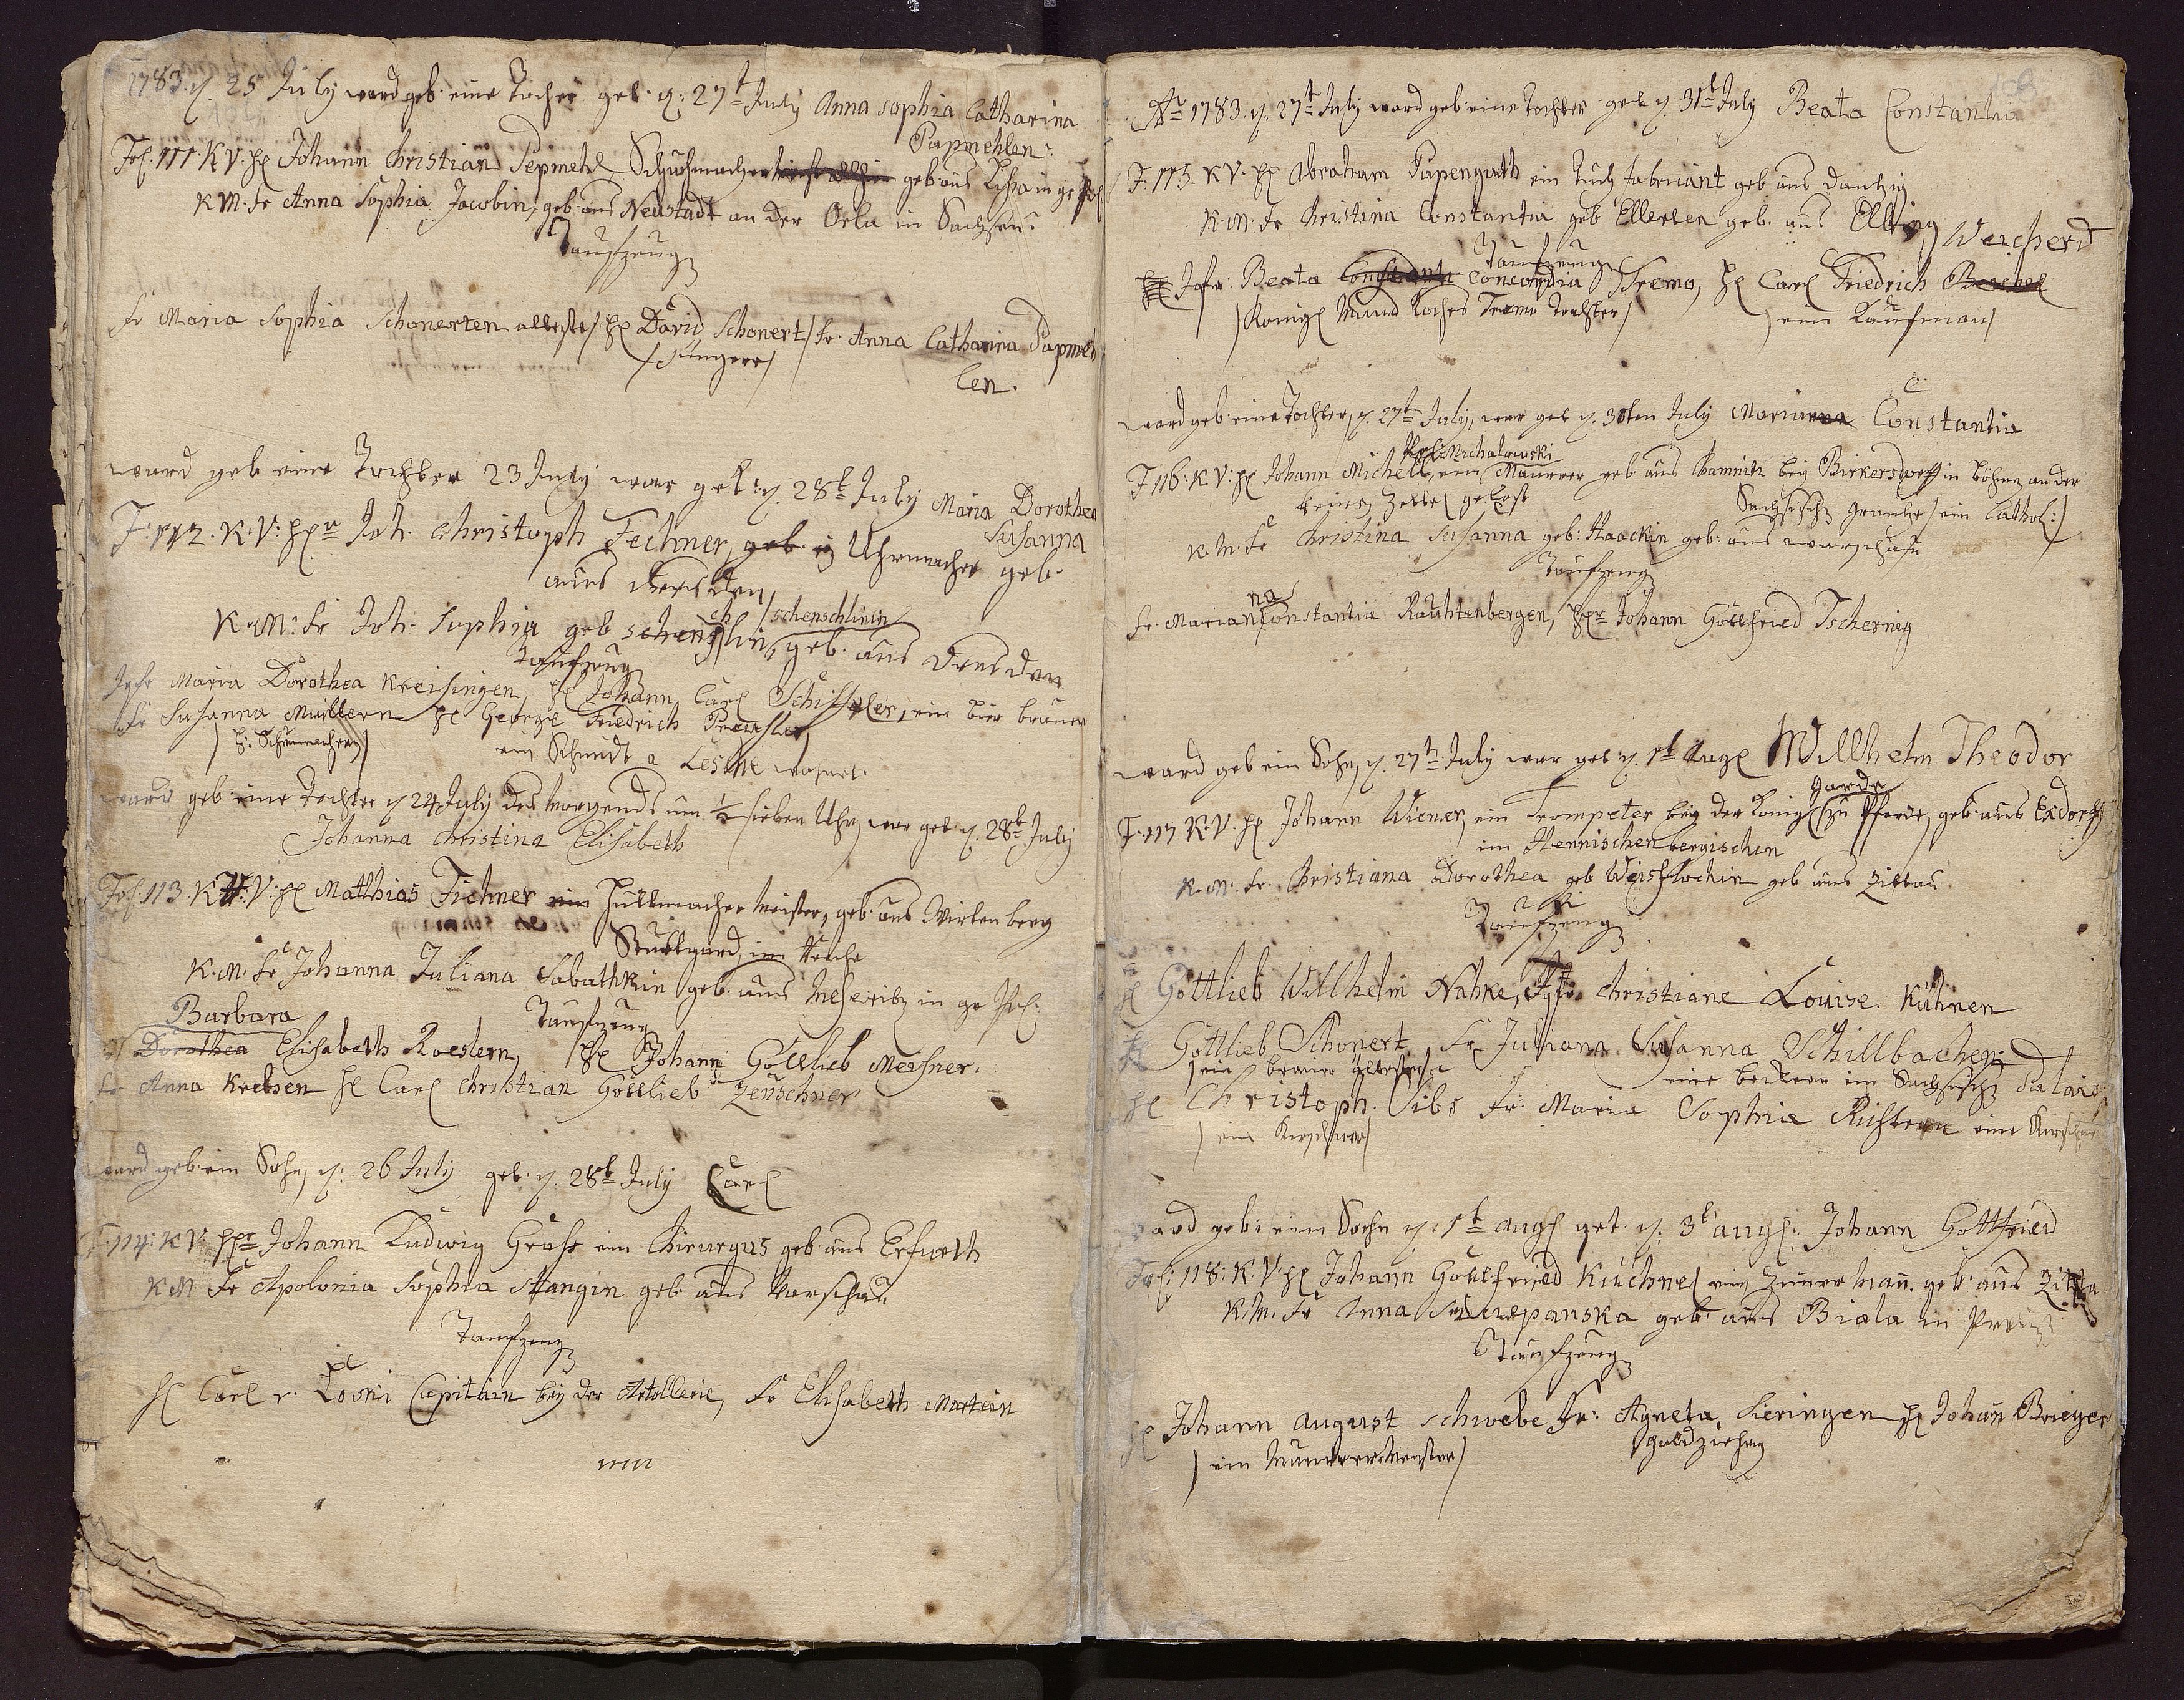 1783. d. 25 July ward geb. eine Tochter get. d. 27t July Anna Sophia Catharina
Papmehlen
Fol. 111. K V. H Johann Christian Pepmehl Schuhmacher geb. aus Lissa in
K M. Fr Anna Sophia Jacobin, geb. aus Neustadt an der Orla in Sachsen
Taufzeug
Fr Maria Sophia Schonerten älteste / H David Schonert / Fr. Anna Catharina Papmeh
/ jüngere /
len.
ward geb. eine Tochter 23 July war get. d. 28t July Maria Dorothea
Susanna
F. 112. K. V: Herr Joh. Christoph Fechner, Uhrmacher geb.
aus Dresden
Schenschlinin
K. M: Fr Joh. Sophia geb. geb. aus Dresden
Taufzeug
Jgfr Maria Dorothea Kreisingen, H Johann Carl Schiffler, ein Bier brauer
Fr Susanna Müllern H George Friedrich Preusler
ein Schmidt a Leschne wohnet.
ward geb. eine Tochter d 24 July des Morgends um 1/2 sieben Uhr, war get. d. 28t July
Johanna Christina Elisabeth
Fol. 113. K. V: H Matthias Fichner ein Huttmacher Meister, geb. aus Wirtenberg
Stuttgard, im Reiche
K. M. Fr Johanna Juliana Sabathkin geb. aus Meseritz in gr Pol.
Barbara
Taufzeug
Dorothea Elisabeth Roeslern, H Johann Gottlieb Meisner.
Fr Anna Krebsen H Carl Christian Gottlieb Zenschner
ward geb. ein Sohn, d. 26 July get. d. 28t July Carl
F. 114: K V: Herr Johann Ludwig Grass ein Chirurgus geb. aus Erfurth
K M Fr Apolonia Sophia Stangin geb. aus Warschau
Taufzeug
H Carl v. Loski Capitain bey der Artollerie, Fr Elisabeth Martein
Ao 1783. d. 27t July ward geb. eine Tochter get d. 31t July Beata Constantia
F. 115. K V. H Abraham Papenguth ein Tuch Fabricant geb aus Dantzig
K. M. Fr Christina Constantia geb Ellerten geb. aus Elbing
Weicherd
Taufzeug
Jgfr: Beata Constanti Concordia Tremo, H Carl Friedrich
/ Königl Mund Kochs Tremo Tochter / / ein Kaufman /
C.
ward geb. eine Tochter, d. 27t July, war get d. 30ten July Mariana Constantia
Michalowski
F 116: K. V: H Johann Michell, ein Maurer geb aus Kamnitz bey Birkersdorff in Böhmen an der
keinen Zettel gelost Sächsische Grantze / ein Cathol: /
K. M. Fr Christina Susanna geb: Haackin geb. aus Warschau
Taufzeug
na
Fr. Marian Constantia Rauhtenbergen, Herr Johann Gottfried Tschernig
ward geb ein Sohn, d. 27t July war get d. 1t Augl Willhelm Theodor
Garde
F. 117 K. V. H Johann Wiener, ein Trompeter bey der Königl zu Pferde, geb. aus Exdorff
im Hennischenbergischen
K. M. Fr. Christiana Dorothea geb Weisflochin geb aus Zittau
Taufzeug
H Gottlieb Willhelm Nahke, Jgfr Christiane Louise Kühnen
H Gottlieb Schonert, Fr Juliana Susanna Schillbachen
/ ein brauer ältester eine beckern im Sächsisch Palais
H Christoph. Sibs Fr. Maria Sophia Richtern eine
/ ein Kirschner /
ward geb. ein Sohn d. 1t augl get. d. 3t augl. Johann Gottfried
Fol. 118: K. V. H Johann Gottfried Küchnel ein Zimerman geb aus Zitta
K. M. Fr Anna geb aus Biala in
Taufzeug
H Johann August Schwebe Fr: Agneta Sieringen H Johan Brieger
/ ein Maurer Meister / / Goldzieher